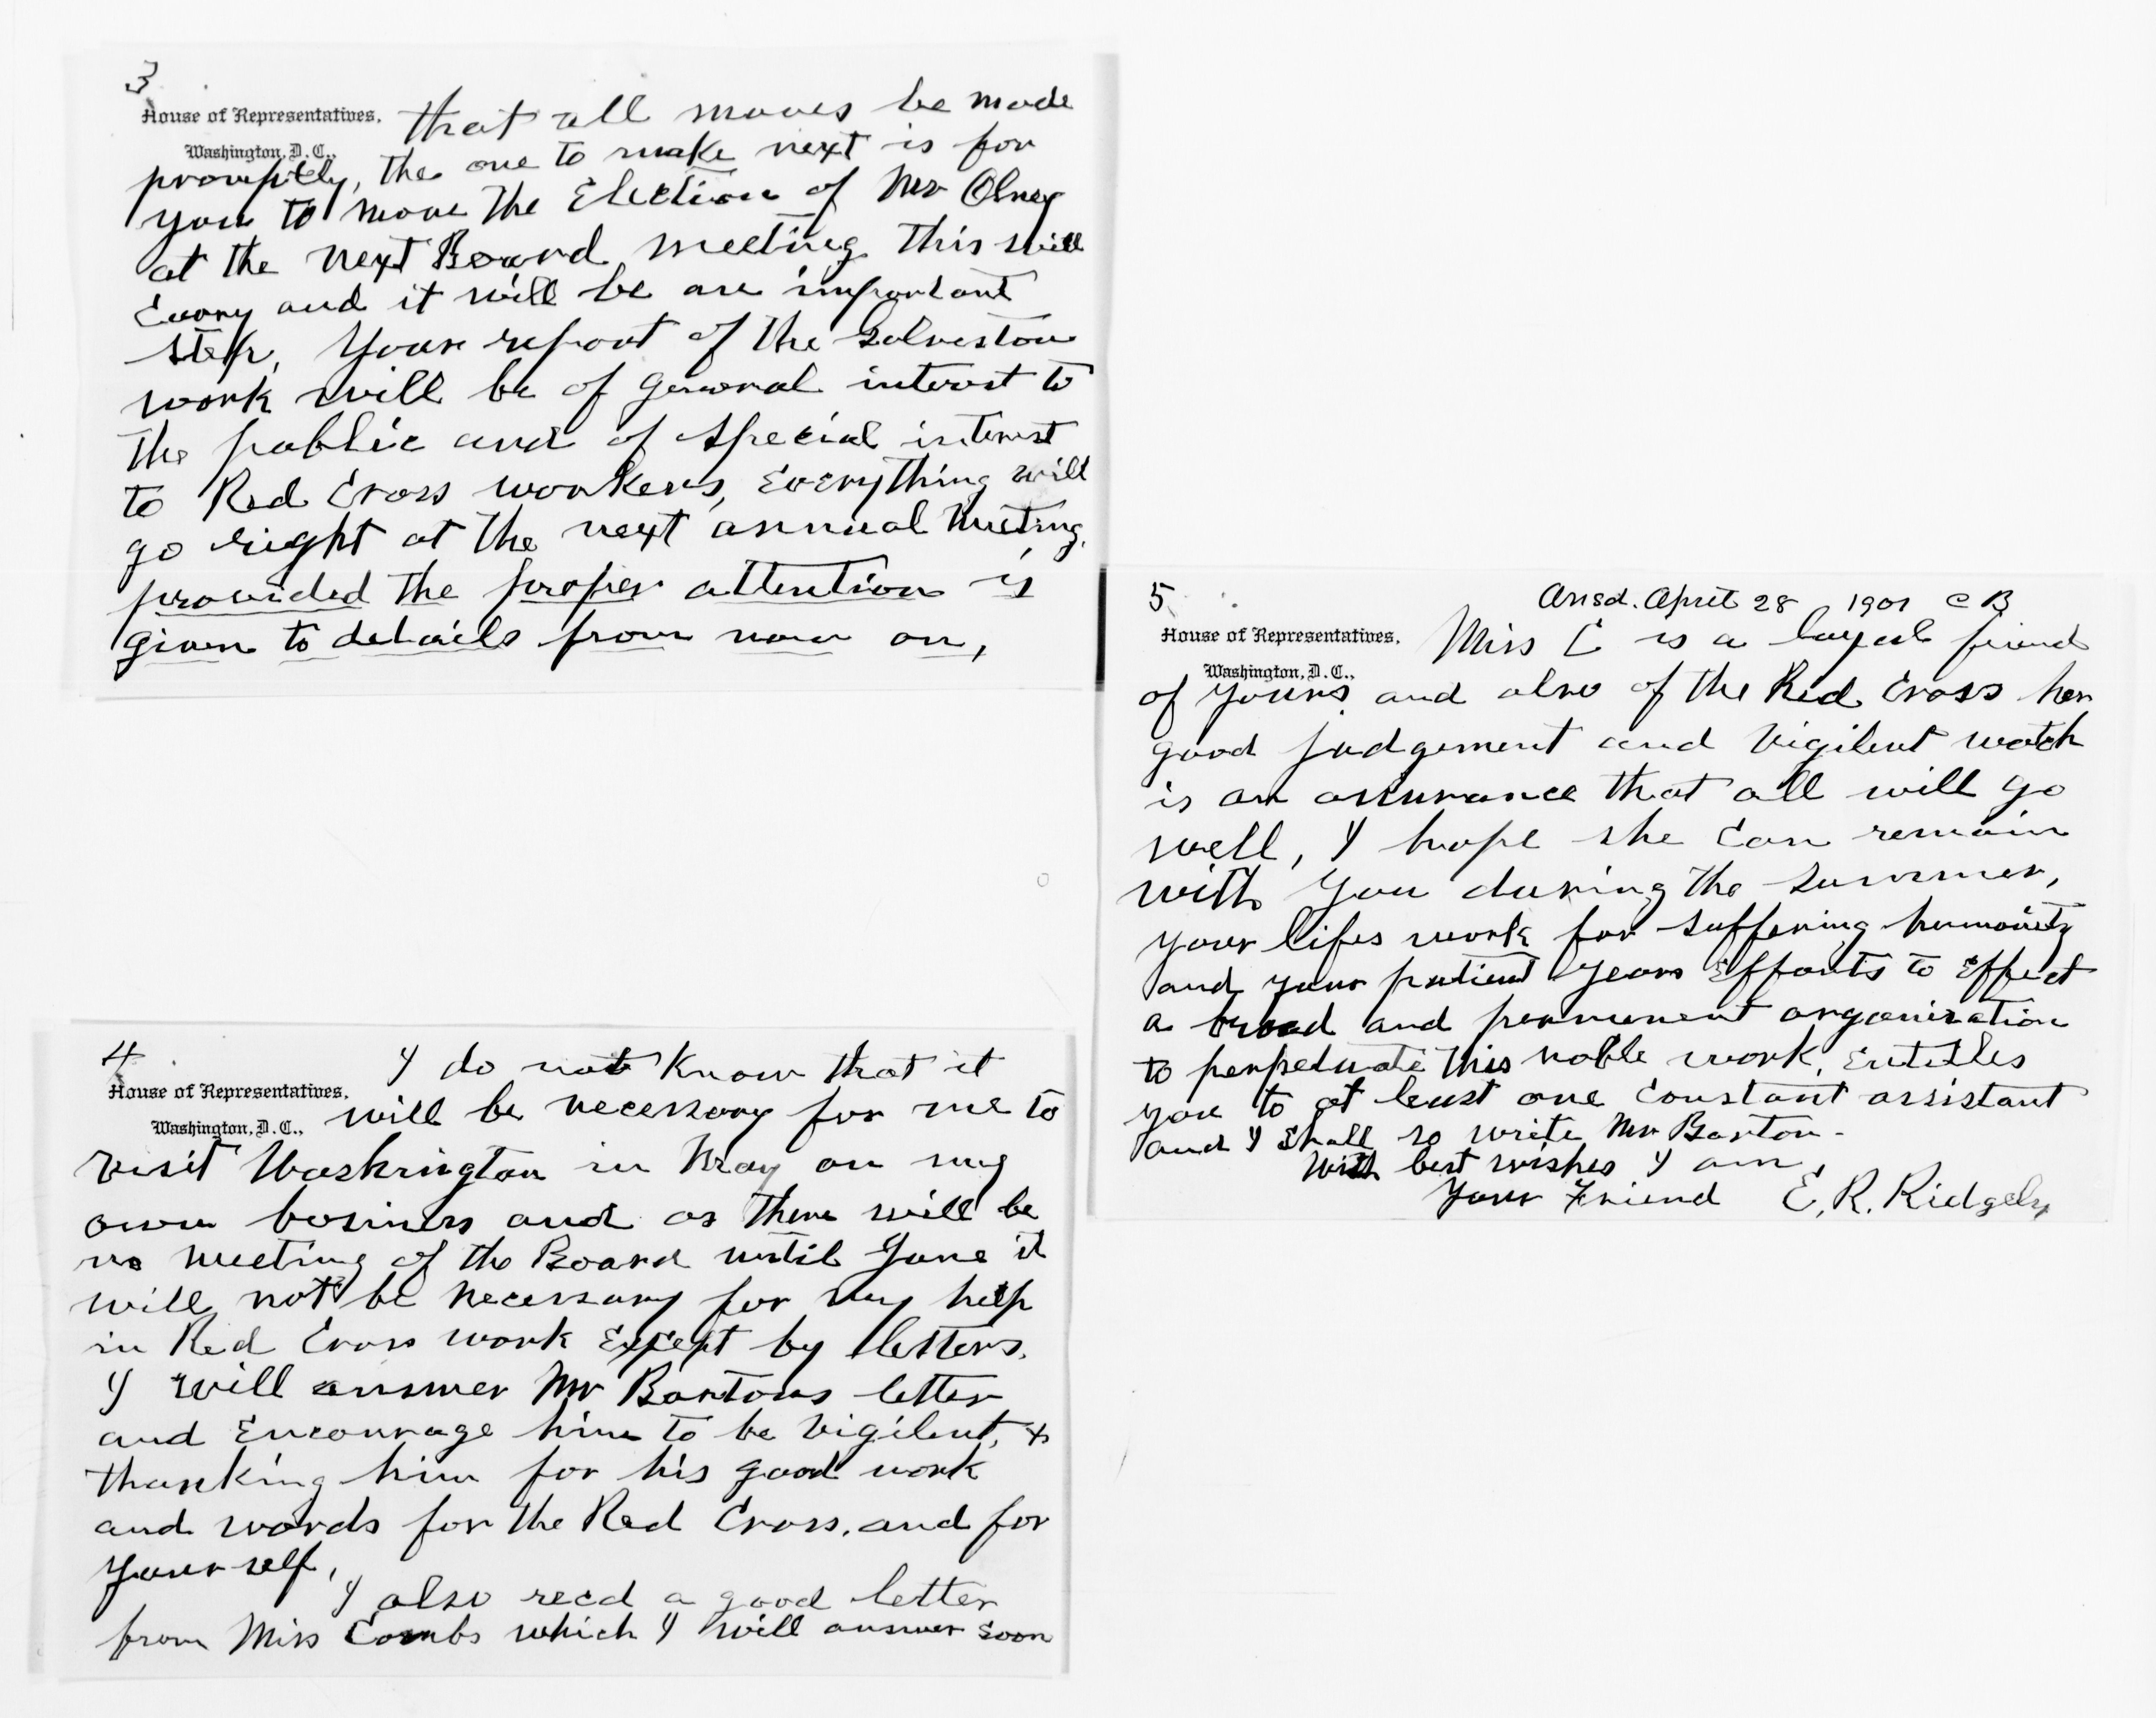 3
House of Representatives,
Washington, D.C.,
that all moves be made
promptly, the one to make next is for
you to move the Election of Mr Olney
at the next Board meeting this will
Carry and it will be an important
step, Your report of the Galveston
work will be of general interest to
the public and of special interest
to Red Cross workers, Everything will
go right at the next annual Meeting,
provided the proper attention is
given to details from now on,
4
House of Representatives,
Washington, D.C.,
I do not Know that it
will be necessary for me to
visit Washington in May on my
own business and as there will be
no meeting of the Board until June it
will not be necessary for my help
in Red Cross work Except by letters.
I will answer Mr Bartons letter
and Encourage him to be vigilent, +
thanking him for his good work
and words for the Red Cross, and for
your self,
I also recd a good letter
from Miss Combs which I will answer soon
5
Ansd. April 28 1901 C B
House of Representatives,
Washington, D.C.,
Miss C is a loyal friend
of yours and also of the Red Cross her
good judgement and vigilent watch
is an assurance that all will go
well, I hope she can remain
with you during the summer,
your lifes work for suffering humanity
and your patient years Efforts to Effect
a broad and permanent organization
to perpetuate this noble work, Entitles
you to at least one Constant assistant
and I shall so write Mr Barton -
With best wishes I am,
Your Friend E. R. Ridgely